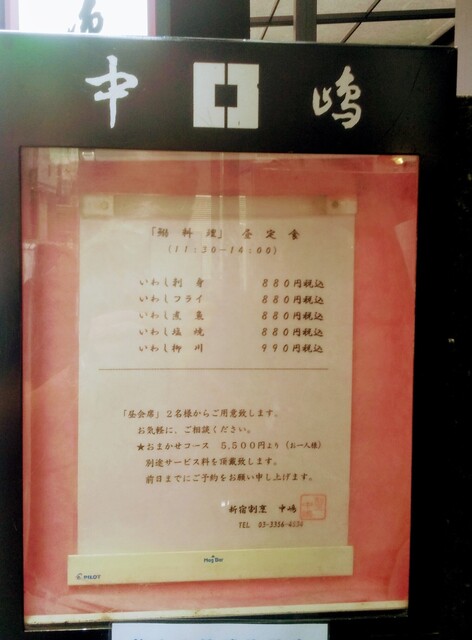 中 嶋
「鰯 料 理」 昼 定 食
(11:30-14:00)
いわし刺 身 880円税込
いわしフライ 880円税込
いわし煮 魚 880円税込
いわし塩 焼 880円税込
いわし柳 川 990円税込
「昼会席」2名様からご用意致します。
お気軽に、ご相談ください。
★おまかせコース 5,500円より (お一人様)
別途サービス料を頂戴致します。
前日までにご予約をお願い申し上げます。
新宿割烹 中嶋
TEL 03-3356-4534
Mag Bar
PILOT